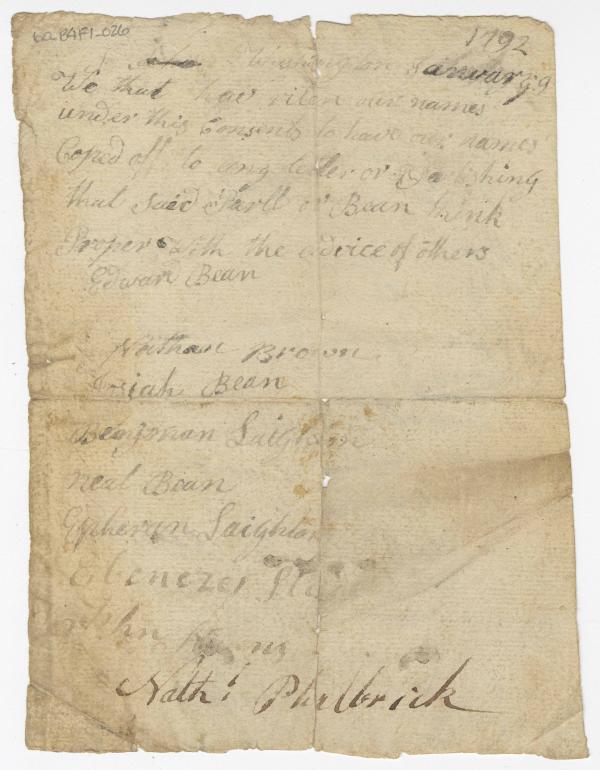 62-B4F1-026
1792
January 9
We that hav riten our names
under this Consents to have our names
Coped off to any letter or
that Said or Bean think
Proper With the advice of others
Edwar Bean
Nathan Brown
Josiah Bean
Benjman Laighton
Neal Bean
Epherim Laighton
Ebenezer
John
Nathl Philbrick